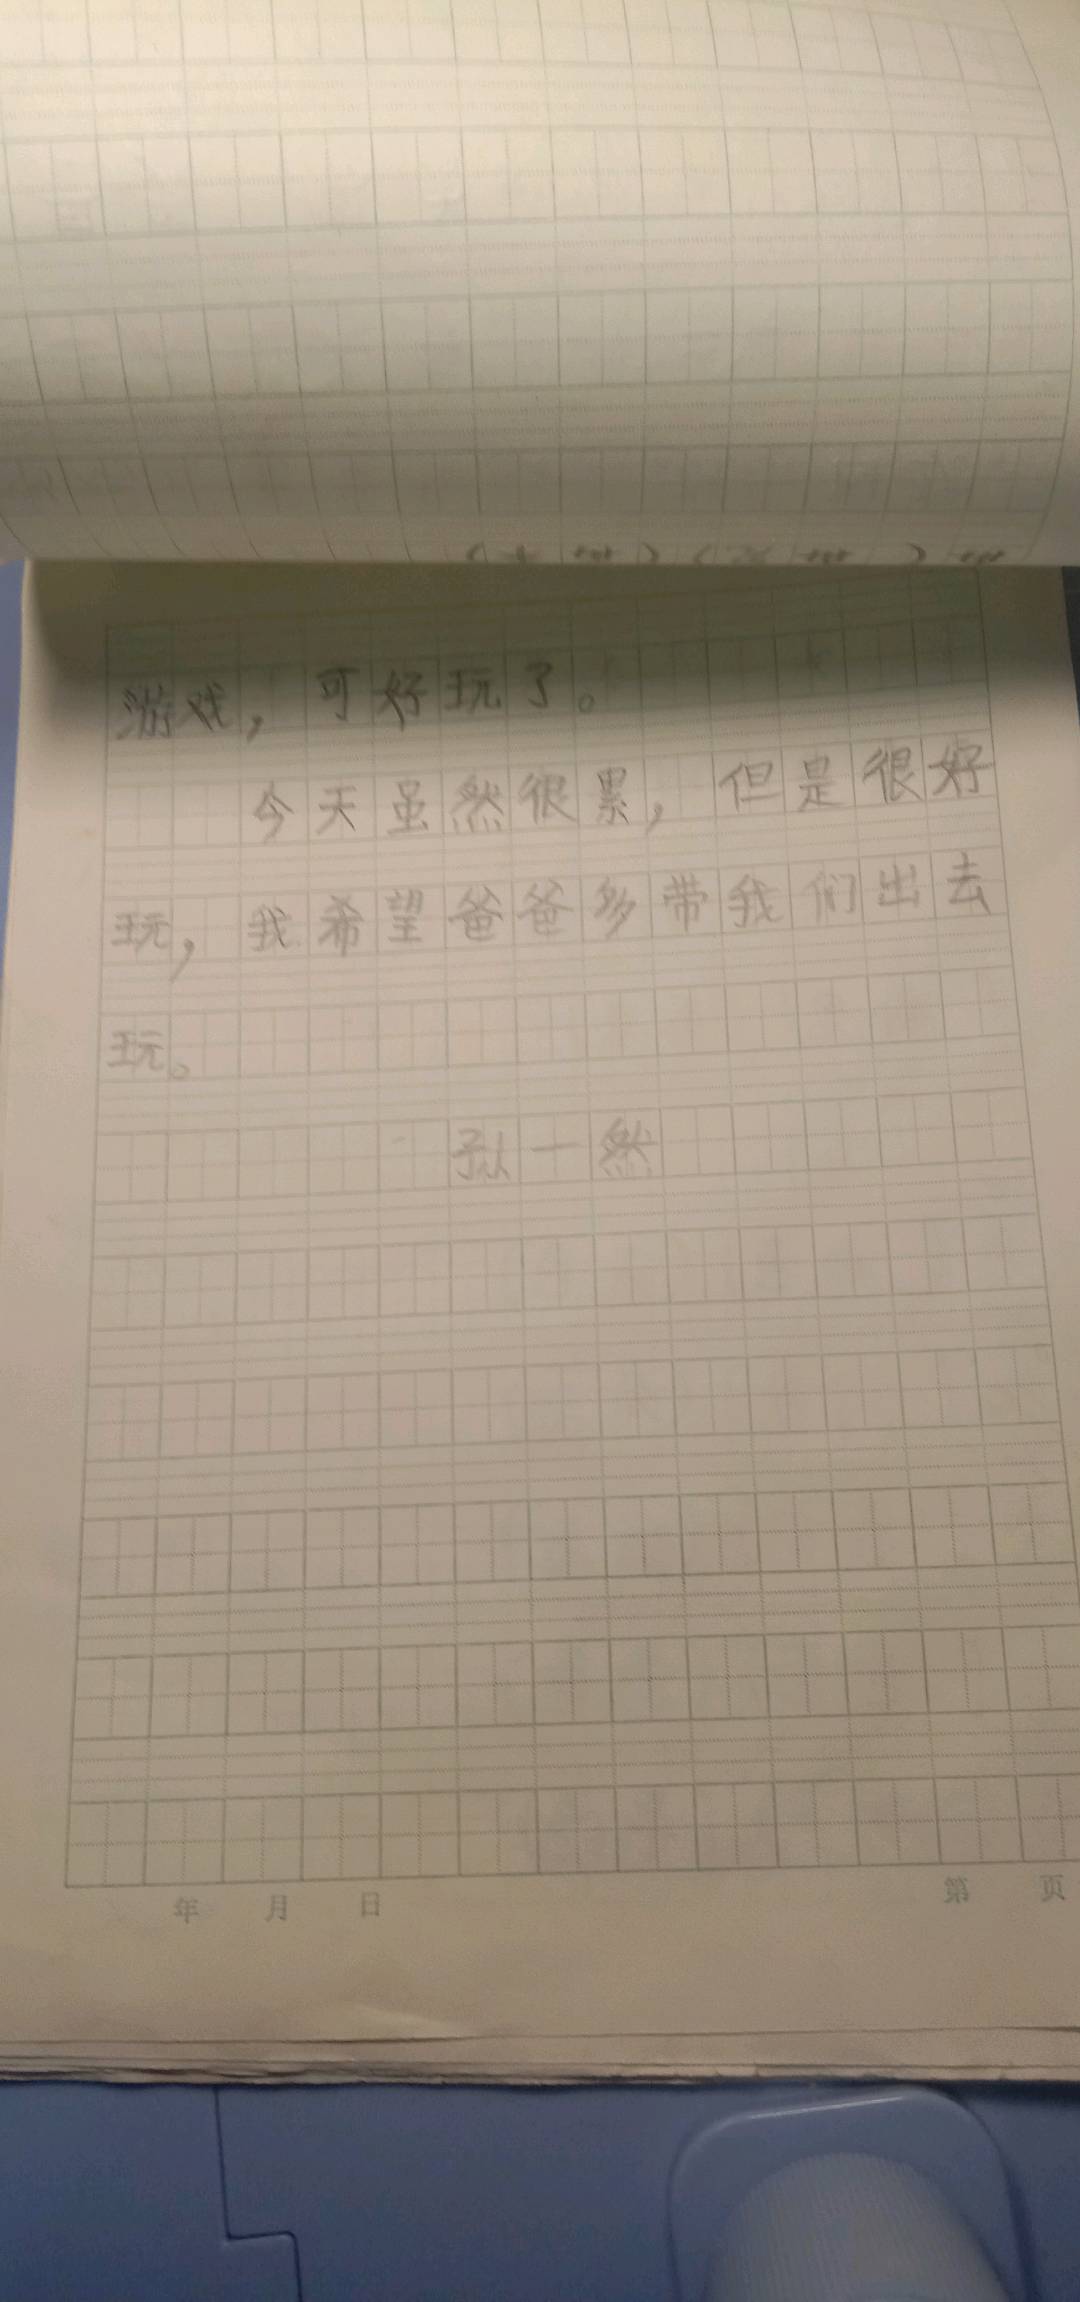 游戏，可好玩了。
今天虽然很累，但是很好
玩，我希望爸爸多带我们出去
玩。
孙一然
年 月 日 第 页